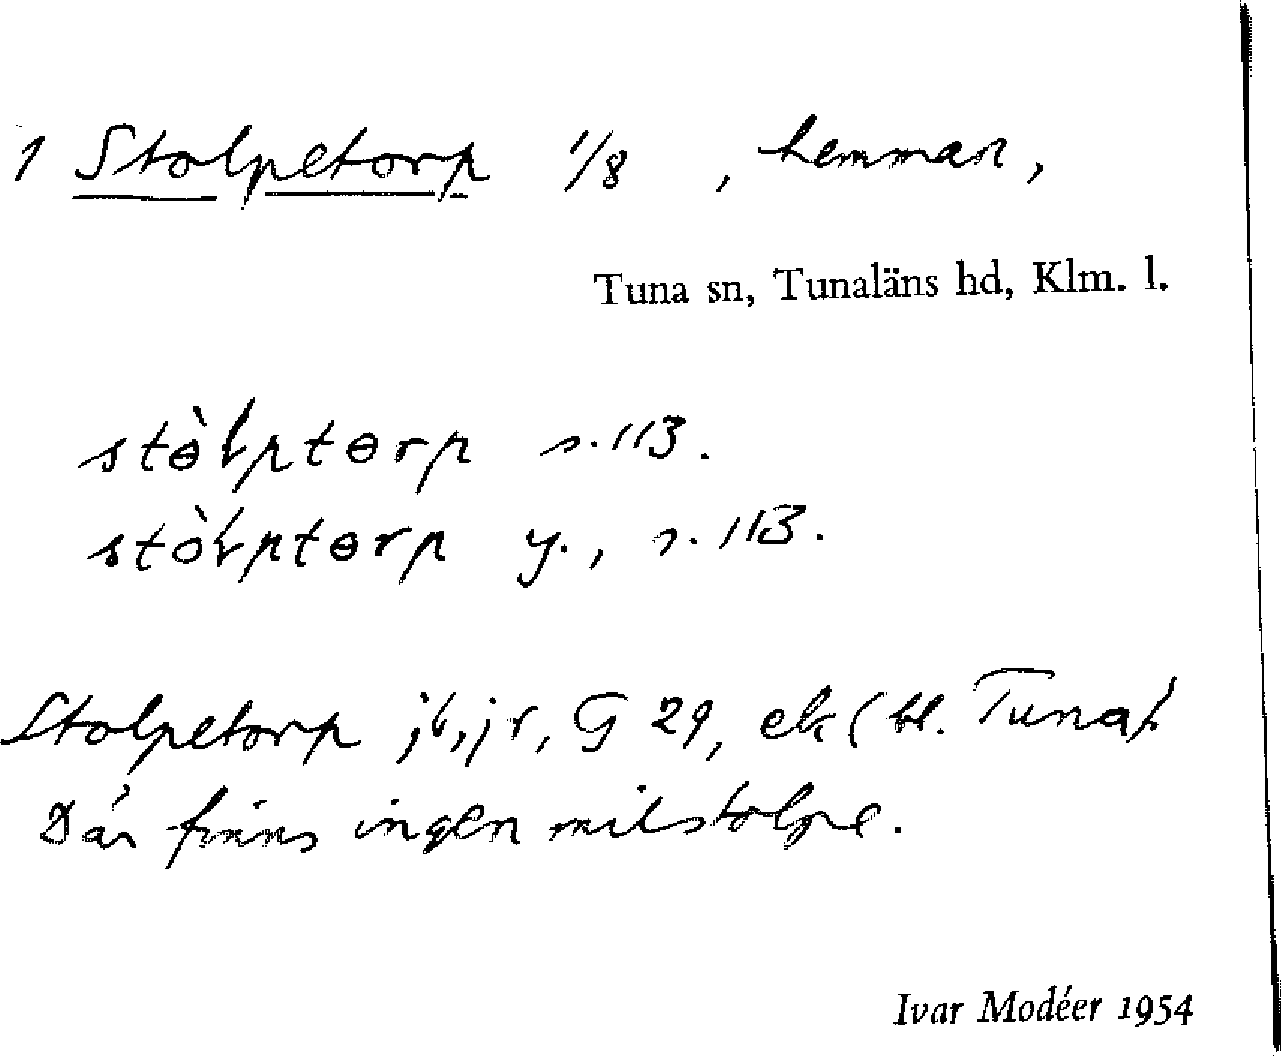 1 Stolpetorp 1/8 , hemman,
Tuna sn, Tunaläns hd, Klm. l.
stɵ̀lptɵrp s. 113.
stòlptɵrp y., s. 113.
Stolpetorp jb, jr, G 29, ek (bl. Tuna).
Där finns ingen milstolpe.
Ivar Modéer 1954